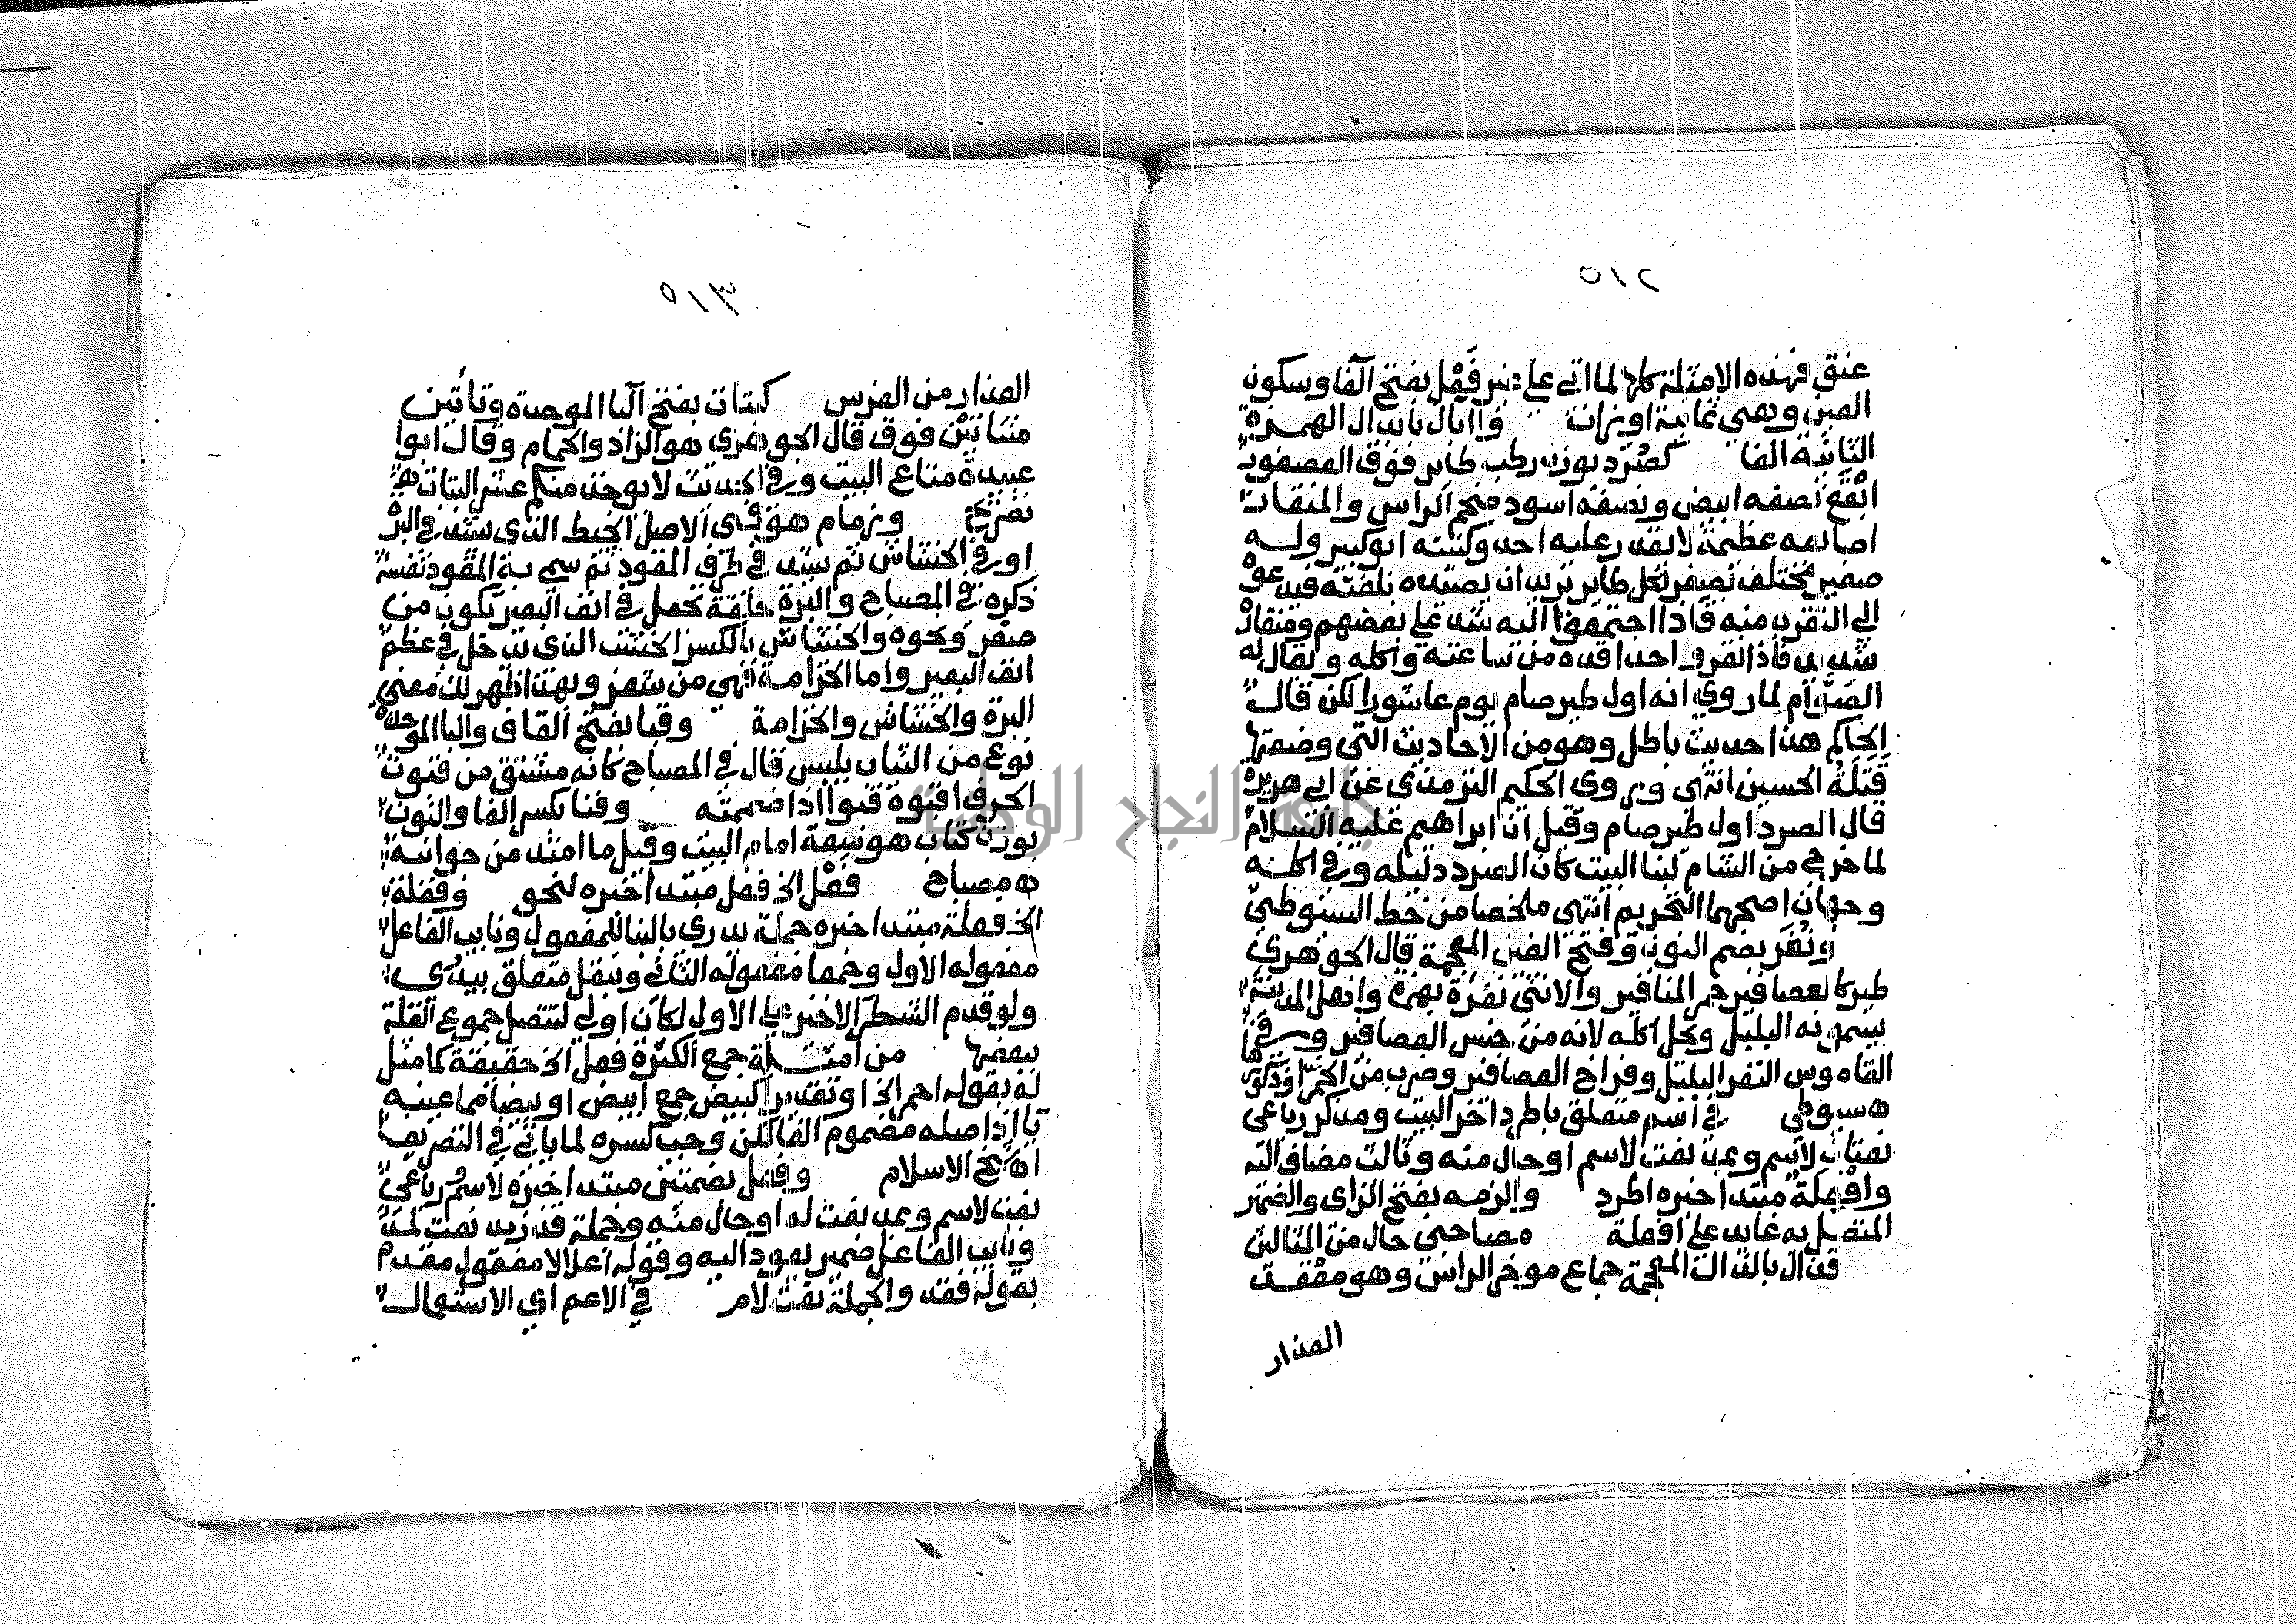 ٥١٢
عنق فهذه الامثلة كلها لما اتى على غير فعل بفتح الفا وسكون
العين وهي ثمانية اوزان وا ابال بابدال الهمزة
الثانية الفا كصرد بوزن رطب طاير فوق العصفور
ابقع نصفه ابيض ونصفه اسود ضخم الراس والمنقار
اصابعه عظيمة لا يقدر عليه احد وكنيته ابو كبير وله
صفير مختلف يصفر لكل طاير يريد ان يصيده بلغته فيدعوه
الى التقرب منه فاذا اجتمعوا اليه شد على بعضهم ومنقاره
شديد فاذا نقر واحدا قده من ساعته واكله ويقال له
الصوام لما روي انه اول طير صام يوم عاشورا لكن قال
الحاكم هذا حديث باطل وهو من الاحاديث التي وضعتها
قتلة الحسين انتهى وروى الحكيم الترمذي عن ابي هريرة
قال الصرد اول طير صام وقيل ان ابراهيم عليه السلام
لما خرج من الشام لبنا البيت كان الصرد دليله وفي اكله
وجهان اصحهما التحريم انتهى ملخصا من خط السيوطي
ونغر بضم النون وفتح الغين المعجمة قال الجوهري
طير كالعصافير حمر المناقير والانثى نغرة بهمزة واهل المدينة
يسمونه البلبل وتحل اكله لانه من جنس العصافير وفي
القاموس النغر البلبل وفراخ العصافير وضرب من الحمر
ه سيوطي في اسم متعلق باطرد اخر البيت ومذكر رباعي
نعتان لاسم وبمد نعت لاسم او حال منه وثالث مضاف اليه
وافعلة مبتدا خبره اطرد والزمه بفتح الزاى والضمير
المتصل به عايد على افعلة مصاحبي حال من المثالين
قذال بالذال المعجمة جماع موخر الراس وهو معقد
العذار
٥١٣
العذار من الفرس كبتات بفتح البا الموحدة وتاتين
مثناتين فوق قال الجوهري هو الزاد والجهاز وقال ابوا
عبيدة متاع البيت وفي الحديث لا يوخذ منكم عشر البتات ه
تصريح وزمام هو في الاصل الخيط الذي يشد في البرة
او في الخشاش ثم يشد في طرف المقود ثم سمي به المقود نفسه
ذكره في المصباح والبرة حلقة تجعل في انف البعير تكون من
صفر ونحوه والخشاش بالكسر الخشب الذي يدخل في عظم
انف البعير واما الخزامة فهي من شعر وبهذا ظهر لك معنى
البرة والخشاش والخزامة وقبا بفتح القاف والبا الموحدة
نوع من الثياب يلبس قال في المصباح كانه مشتق من قبوت
الحرف اقبوه قبوا اذا ضممته وفنا بكسر الفا والنون
بوزن كتاب هو سعة امام البيت وقيل ما امتد من جوانبه
ه مصباح فعل الخ فعل مبتدا خبره لنحو وفعلة
الخ فعلة مبتدا خبره جملة يدرى بالبنا للمفعول ونايب الفاعل
مفعوله الاول وجمعا مفعوله الثاني وبنقل متعلق بيدرى
ولو قدم الشطر الاخير على الاول لكان اولى لتتصل جموع القلة
ببعضها من امثلة جمع الكثرة فعل الخ حقيقة كما مثل
له بقوله احمر الخ او تقديرا كبيض جمع ابيض او بيضا مما عينه
يا اذ اصله مضموم الفا لكن وجب كسره لما ياتي في التصريف
اه شيخ الاسلام وفعل بضمتين مبتدا خبره لاسم رباعي
نعت لاسم وبمد نعت له او حال منه وجملة قد زيد نعت لمد
ونايب الفاعل ضمير يعود اليه وقوله اعلالا مفعول مقدم
بقوله فقد والجملة نعت لام في الاعم اي الاستعمال